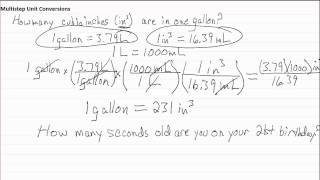 Multistep Unit Conversions
How many cubic inches (in³) are in one gallon?
1 gallon = 3.79L 1 in³ = 16.39 mL
1L = 1000mL
1 gallon × (3.79L / 1 gallon) × (1000mL / 1L) × (1 in³ / 16.39 mL) = (3.79)(1000) in³ / 16.39
1 gallon = 231 in³
How many seconds old are you on your 21st birthday?